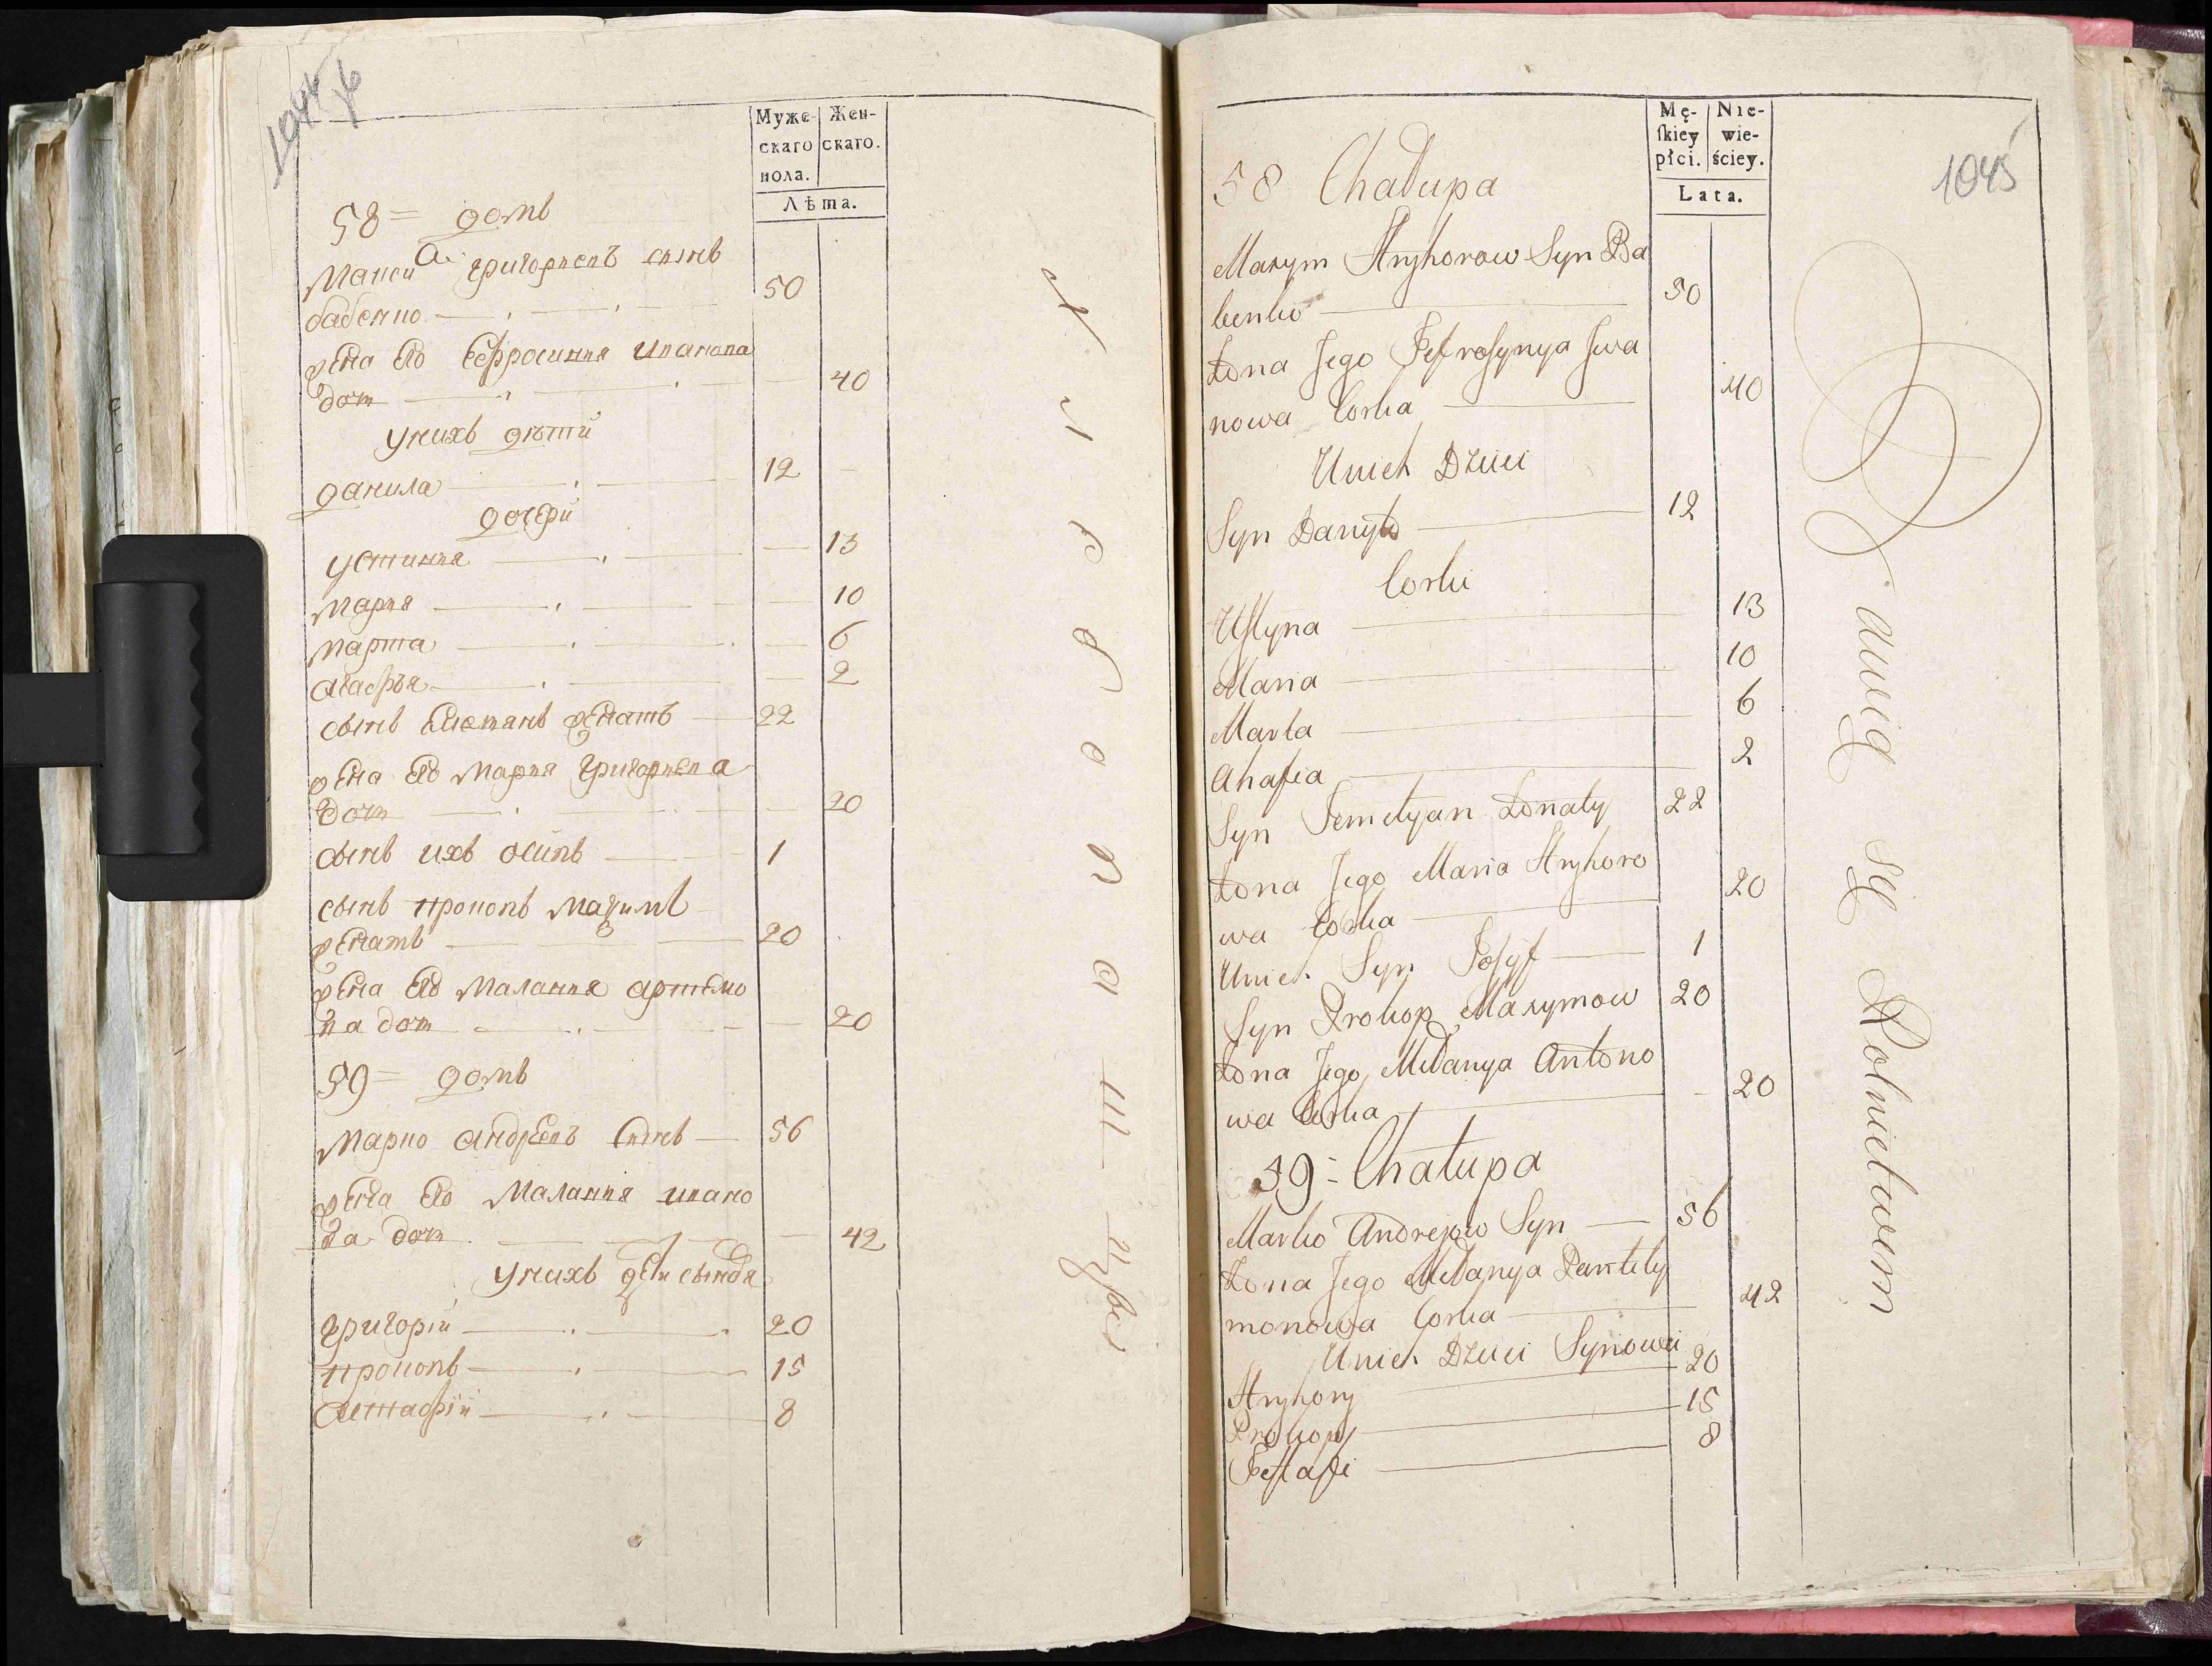 Муже-
скаго
пола.
Жен-
скаго.
Лѣта.
58 = домъ
григориевъ сынъ
бабенко
50
жена его Еефросиния иванова
доч
40
у нихъ дѣти
данила 12
дочери
устиния 13
мария 10
марта 6
агафья 2
сынъ женатъ 22
жена его мария григориева
доч 20
сынъ ихъ осипъ 1
сынъ прокопъ
женатъ 20
жена его малания
ва доч 20
59 = домъ
марко андреевъ сынъ 56
жена его малания ивано
ва доч 42
у нихъ дети сыновя
григорiй 20
прокопъ 15
8
Mę-
ſkiey
płci.
Nie-
wie-
ściey.
Lata.
1045
58 Chałupa
Maxym Hryhorow Syn Ba
benko 50
Żona Jego Jefrosynya Jwa
nowa Corka 40
Unich Dzieci
Syn Danyło 12
Corki
Ustyna 13
Maria 10
Marta 6
Ahafia 2
Syn Jemelyan Żonaty 22
Żona Jego Maria Hryhoro
wa Corka 20
Unich Syn Josyf 1
Syn Prokop Maxymow 20
Żona Jego Mełanya Antono
wa Corka 20
59 = Chałupa
Marko Andrejow Syn 56
Żona Jego Mełanya Pantely
monowa Corka 42
Unich Dzieci Synowei
Hryhory 20
Prokop 15
Jestafi 8
Rolnictwem